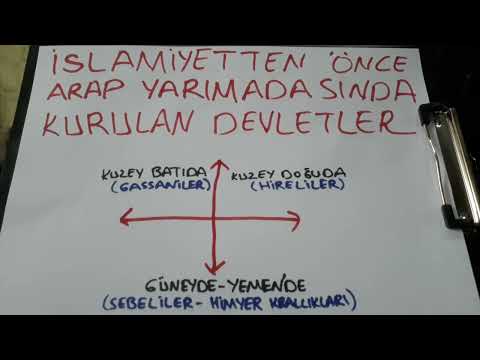 İSLAMİYETTEN ÖNCE
ARAP YARIMADASINDA
KURULAN DEVLETLER
KUZEY BATIDA
(GASSANİLER)
KUZEY DOĞUDA
(HİRELİLER)
GÜNEYDE-YEMENDE
(SEBELİLER-HİMYER KRALLIKLARI)